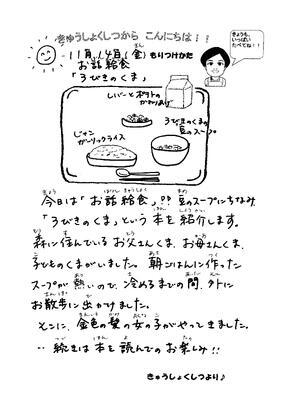 きゅうしょくしつから こんにちは!!
11月14日(金)もりつけかた
お話給食
「3びきのくま」
きょうも、
いっぱい
たべてね!!
レバーとポテトの
かわりあげ
3びきのくまの
豆のスープ
ジャン
ガーリックライス
今日は「お話給食」!! 豆のスープにちなみ
「3びきのくま」という本を紹介します。
森に住んでいるお父さんくま、お母さんくま、
子どものくまがいました。朝ごはんに作った
スープが熱いので、冷めるまでの間、外に
お散歩に出かけました。
そこに、金色の髪の女の子がやってきました。
‥続きは本を読んでのお楽しみ!!
きゅうしょくしつより♪